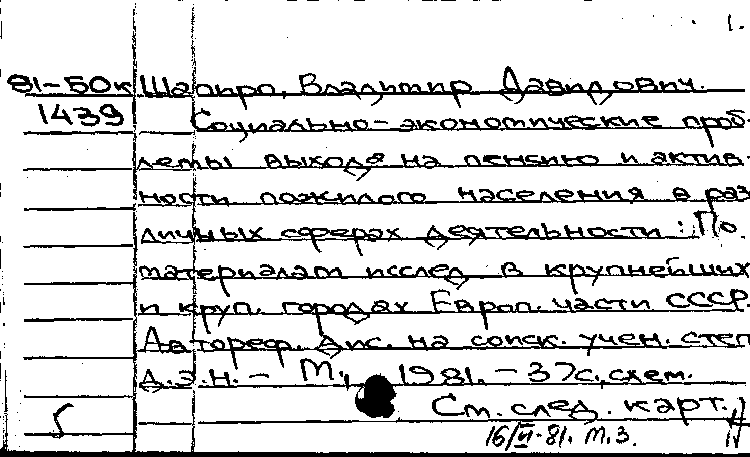 1.
81-50к Шапиро, Владимир Давидович.
1439 Социально-экономические проб-
лемы выхода на пенсию и актив-
ности пожилого населения в раз
личных сферах деятельности: По
материалам исслед. в крупнейших
и круп. городах Европ. части СССР.
Автореф. дис. на соиск. учен. степ
д.э.н. - М., 1981. - 37с., схем.
См. след. карт.
5 16/VI-81. М.З.